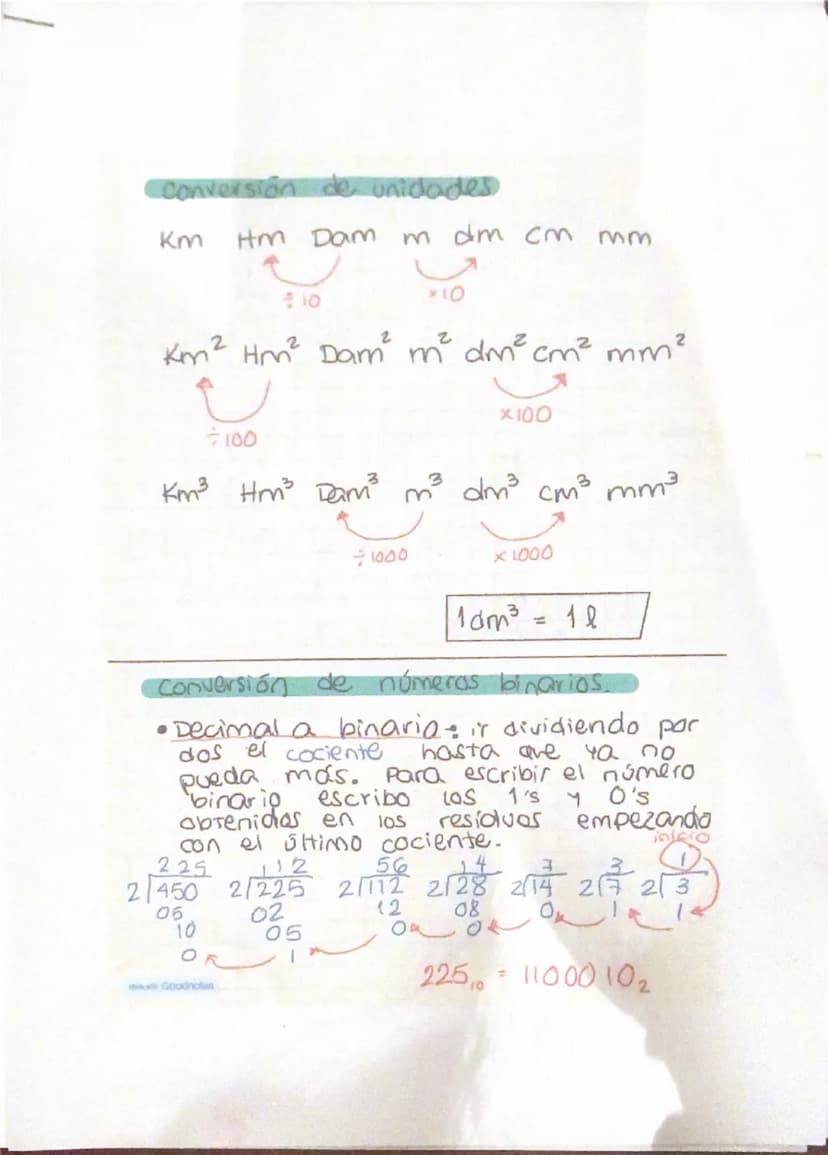 Conversión de unidades
Km Hm Dam m dm cm mm
÷10 ×10
Km² Hm² Dam² m² dm² cm² mm²
÷100 ×100
Km³ Hm³ Dam³ m³ dm³ cm³ mm³
÷1000 ×1000
1dm³ = 1l
Conversión de números binarios.
• Decimal a binario: ir dividiendo por
dos el cociente hasta que ya no
pueda más. Para escribir el número
binario escribo los 1's y 0's
obtenidos en los residuos empezando
con el último cociente.
inicio
225 112 56 14 7 3 1
2⟌450 2⟌225 2⟌112 2⟌28 2⟌14 2⟌7 2⟌3
05 02 12 08 0 1 1
10 05 0 0
0 1
225₁₀ = 1100010₂
Goodnotes